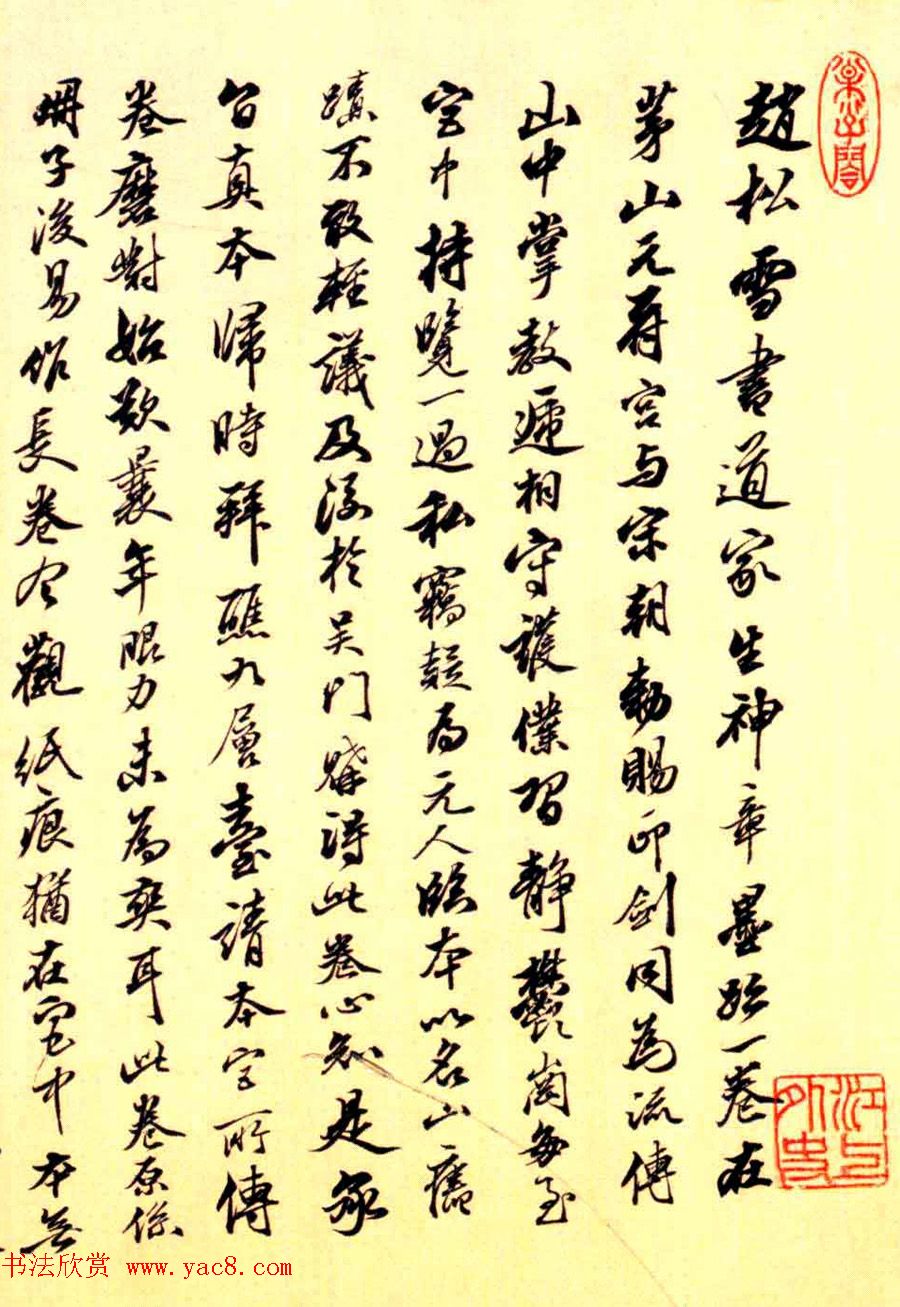 趙松雪書道家生神章墨跡一卷在
茅山元符宮與宋朝勅賜印劍同為流傳
山中掌教遞相守護僕習靜鬱崗每至
宮中持覽一過私竊疑為元人臨本以名山舊
蹟不敢輕議及後於吳門購得此卷心知是夙
昔真本歸時拜醮九層臺請本宮所傳
卷磨對始歎曩年眼力未為爽耳此卷原係
冊子後易作長卷今觀紙痕猶在宮中本無
江上外史
书法欣赏 www.yac8.com